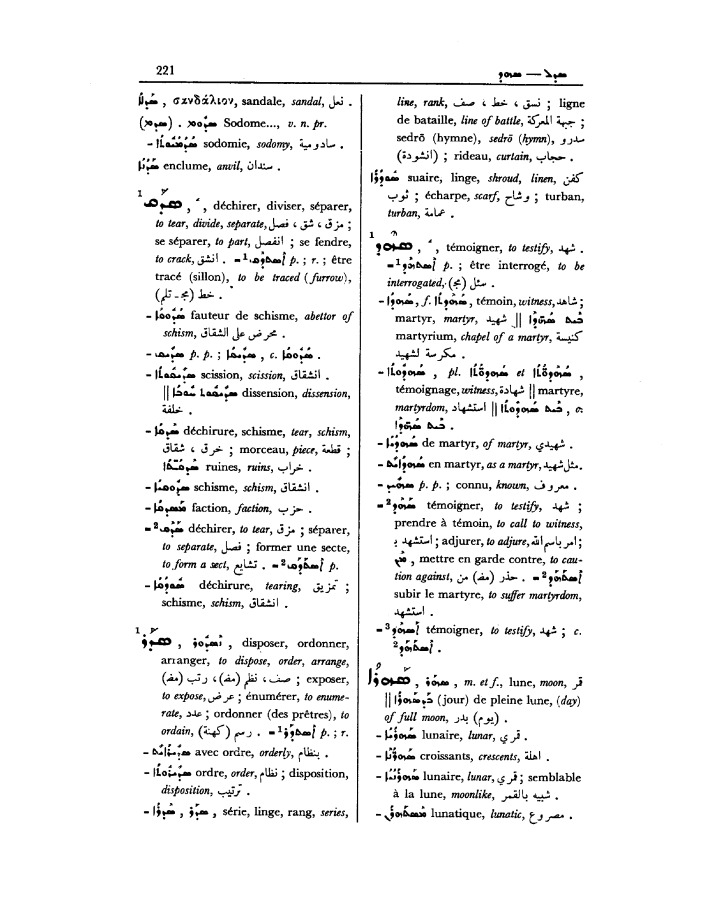 221
ܣܕܠܐ , σανδάλιον, sandale, sandal, نعل .
(ܣܕܘܡ) . ܣܕܘܡ Sodome..., v. n. pr.
- ܣܕܘܡܝܘܬܐ sodomie, sodomy, سادومية .
ܣܕܢܐ enclume, anvil, سندان .
1
ܣܕܩ , déchirer, diviser, séparer,
to tear, divide, separate, مزق ، شق ، فصل ;
se séparer, to part, انفصل ; se fendre,
to crack, انشق . =1 p. ; r. ; être
tracé (sillon), to be traced (furrow),
خط (مج - تلم) .
- ܣܕܘܩܐ fauteur de schisme, abettor of
schism, محرض على الشقاق .
- ܣܕܝܩ p. p. ; ܣܕܝܩܐ , c. ܣܕܘܩܐ .
- ܣܕܝܩܘܬܐ scission, scission, انشقاق .
|| dissension, dissension,
خلفة .
- ܣܕܩܐ déchirure, schisme, tear, schism,
خرق ، شقاق ; morceau, piece, قطعة ;
ruines, ruins, خراب .
- schisme, schism, انشقاق .
- faction, faction, حزب .
=2 ܣܕܩ déchirer, to tear, مزق ; séparer,
to separate, فصل ; former une secte,
to form a sect, تشايع . =2 p.
- déchirure, tearing, تمزيق ;
schisme, schism, انشقاق .
1
ܣܕܪ , ܢܣܕܘܪ , disposer, ordonner,
arranger, to dispose, order, arrange,
صف ، نظم (مف) ، رتب (مف) ; exposer,
to expose, عرض ; énumérer, to enume-
rate, عدد ; ordonner (des prêtres), to
ordain, رسم (كهنة) . =1 p. ; r.
- ܣܕܝܪܐܝܬ avec ordre, orderly, بنظام .
- ܣܕܝܪܘܬܐ ordre, order, نظام ; disposition,
disposition, ترتيب .
- ܣܕܪܐ , ܣܕܪ , série, linge, rang, series,
line, rank, نسق ، خط ، صف ; ligne
de bataille, line of battle, جبهة المعركة ;
sedrō (hymne), sedrō (hymn), سدرو
(انشودة) ; rideau, curtain, حجاب .
ܣܘܕܪܐ suaire, linge, shroud, linen, كفن
ثوب ; écharpe, scarf, وشاح ; turban,
turban, عمامة .
1
ܣܗܕ , témoigner, to testify, شهد .
=1 p. ; être interrogé, to be
interrogated, سئل (مج) .
- ܣܗܕܐ , f. ܣܗܕܬܐ , témoin, witness, شاهد ;
martyr, martyr, شهيد || ܒܝܬ ܣܗܕܐ
martyrium, chapel of a martyr, كنيسة
مكرسة لشهيد .
- ܣܗܕܘܬܐ , pl. et ,
témoignage, witness, شهادة || martyre,
martyrdom, استشهاد || ܒܝܬ ܣܗܕܘܬܐ , c.
ܒܝܬ ܣܗܕܐ .
- ܣܗܕܝܐ de martyr, of martyr, شهيدي .
- en martyr, as a martyr, مثل شهيد .
- ܣܗܝܕ p. p. ; connu, known, معروف .
=2 ܣܗܕ témoigner, to testify, شهد ;
prendre à témoin, to call to witness,
استشهد ب ; adjurer, to adjure, امر باسم الله ;
, mettre en garde contre, to cau-
tion against, حذر (مف) من . =2
subir le martyre, to suffer martyrdom,
استشهد .
=3 ܐܣܗܕ témoigner, to testify, شهد ; c.
2 .
ܣܗܪܐ , ܣܗܪ , m. et f., lune, moon, قمر
|| (jour) de pleine lune, (day)
of full moon, (يوم) بدر .
- lunaire, lunar, قمري .
- croissants, crescents, اهلة .
- ܣܗܪܢܝܐ lunaire, lunar, قمري ; semblable
à la lune, moonlike, شبيه بالقمر .
- lunatique, lunatic, مصروع .